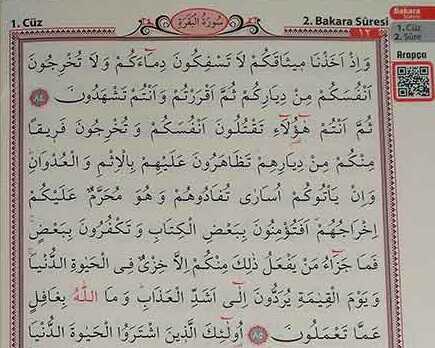 1. Cüz
سُورَةُ الْبَقَرَةِ
2. Bakara Sûresi
١٢
Bakara
Sûresi
1. Cüz
2. Sûre
Arapça
وَاِذْ اَخَذْنَا مٖيثَاقَكُمْ لَا تَسْفِكُونَ دِمَٓاءَكُمْ وَلَا تُخْرِجُونَ
اَنْفُسَكُمْ مِنْ دِيَارِكُمْ ثُمَّ اَقْرَرْتُمْ وَاَنْتُمْ تَشْهَدُونَ ﴿٨٤﴾
ثُمَّ اَنْتُمْ هٰٓؤُ۬لَٓاءِ تَقْتُلُونَ اَنْفُسَكُمْ وَتُخْرِجُونَ فَرٖيقًا
مِنْكُمْ مِنْ دِيَارِهِمْ تَظَاهَرُونَ عَلَيْهِمْ بِالْاِثْمِ وَالْعُدْوَانِ
وَاِنْ يَأْتُوكُمْ اُسَارٰى تُفَادُوهُمْ وَهُوَ مُحَرَّمٌ عَلَيْكُمْ
اِخْرَاجُهُمْ اَفَتُؤْمِنُونَ بِبَعْضِ الْكِتَابِ وَتَكْفُرُونَ بِبَعْضٍ
فَمَا جَزَٓاءُ مَنْ يَفْعَلُ ذٰلِكَ مِنْكُمْ اِلَّا خِزْىٌ فِى الْحَيٰوةِ الدُّنْيَا
وَيَوْمَ الْقِيٰمَةِ يُرَدُّونَ اِلٰٓى اَشَدِّ الْعَذَابِ وَمَا اللّٰهُ بِغَافِلٍ
عَمَّا تَعْمَلُونَ ﴿٨٥﴾ اُو۬لٰٓئِكَ الَّذٖينَ اشْتَرَوُا الْحَيٰوةَ الدُّنْيَا